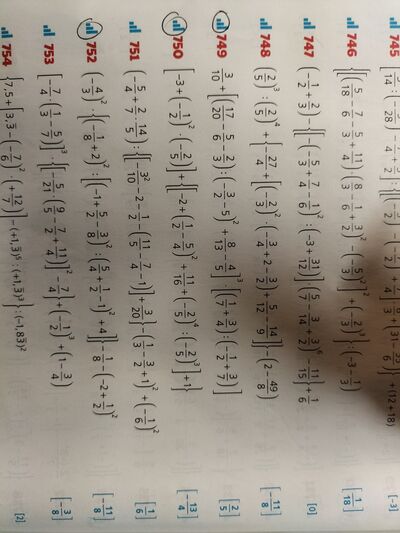 745 [-3]
746 [1/18]
747 (-1/2 + 2/3) - {[(-5/3 + 7/4 - 1/6)² : (-3 + 31/12)] (5/7 - 3/14 + 3/2)⁶ · 11/15} + 1/6 [0]
748 (2/5)³ : (2/5)⁴ + {-27/4 + [(-2/3)² · (-3/4 + 2 - 2/3) + 5/12 - 14/9]} - (2 - 49/8) [-11/8]
749 3/10 + [(17/20 - 5/6 - 2/3) : (3/2 - 5)² + 8/13 - 4/5]³ · [(1/7 + 3/4) : (-1/2 + 3/7)] [2/5]
750 [-3 + (-1/2)² · (-2/5)] + {[-2 + (1/2 - 5/4)² + 11/16 + (-2/5)⁴ : (-2/5)³] + 1} [-13/4]
751 (-5/4 + 2/7 · 14/5) : {[-3²/10 - 2 - 1/2 - (11/5 - 7/4 - 1)] + 3/20} - (1/3 - 3/2 + 1)² + (-1/6)² [1/6]
752 (-4/3)² : {(-1/8 + 2)² : [(-1 + 5/2 - 3/8)² : (5/4 + 1/2 - 1)² + 4]} - 1/8 - (-2 + 1/2)² [-11/8]
753 [-7/4 · (1/3 - 5/7)]³ · {[-5/21 · (9/5 - 7/2 + 11/4)]² - 7/4} + (-1/2)³ + (1 - 3/4) [-3/8]
754 {7,5 + [3,3̅ - (-7/6)² · (+12/7)] - (+1,3)⁵ : (+1,3)³} : (-1,83)² [2]